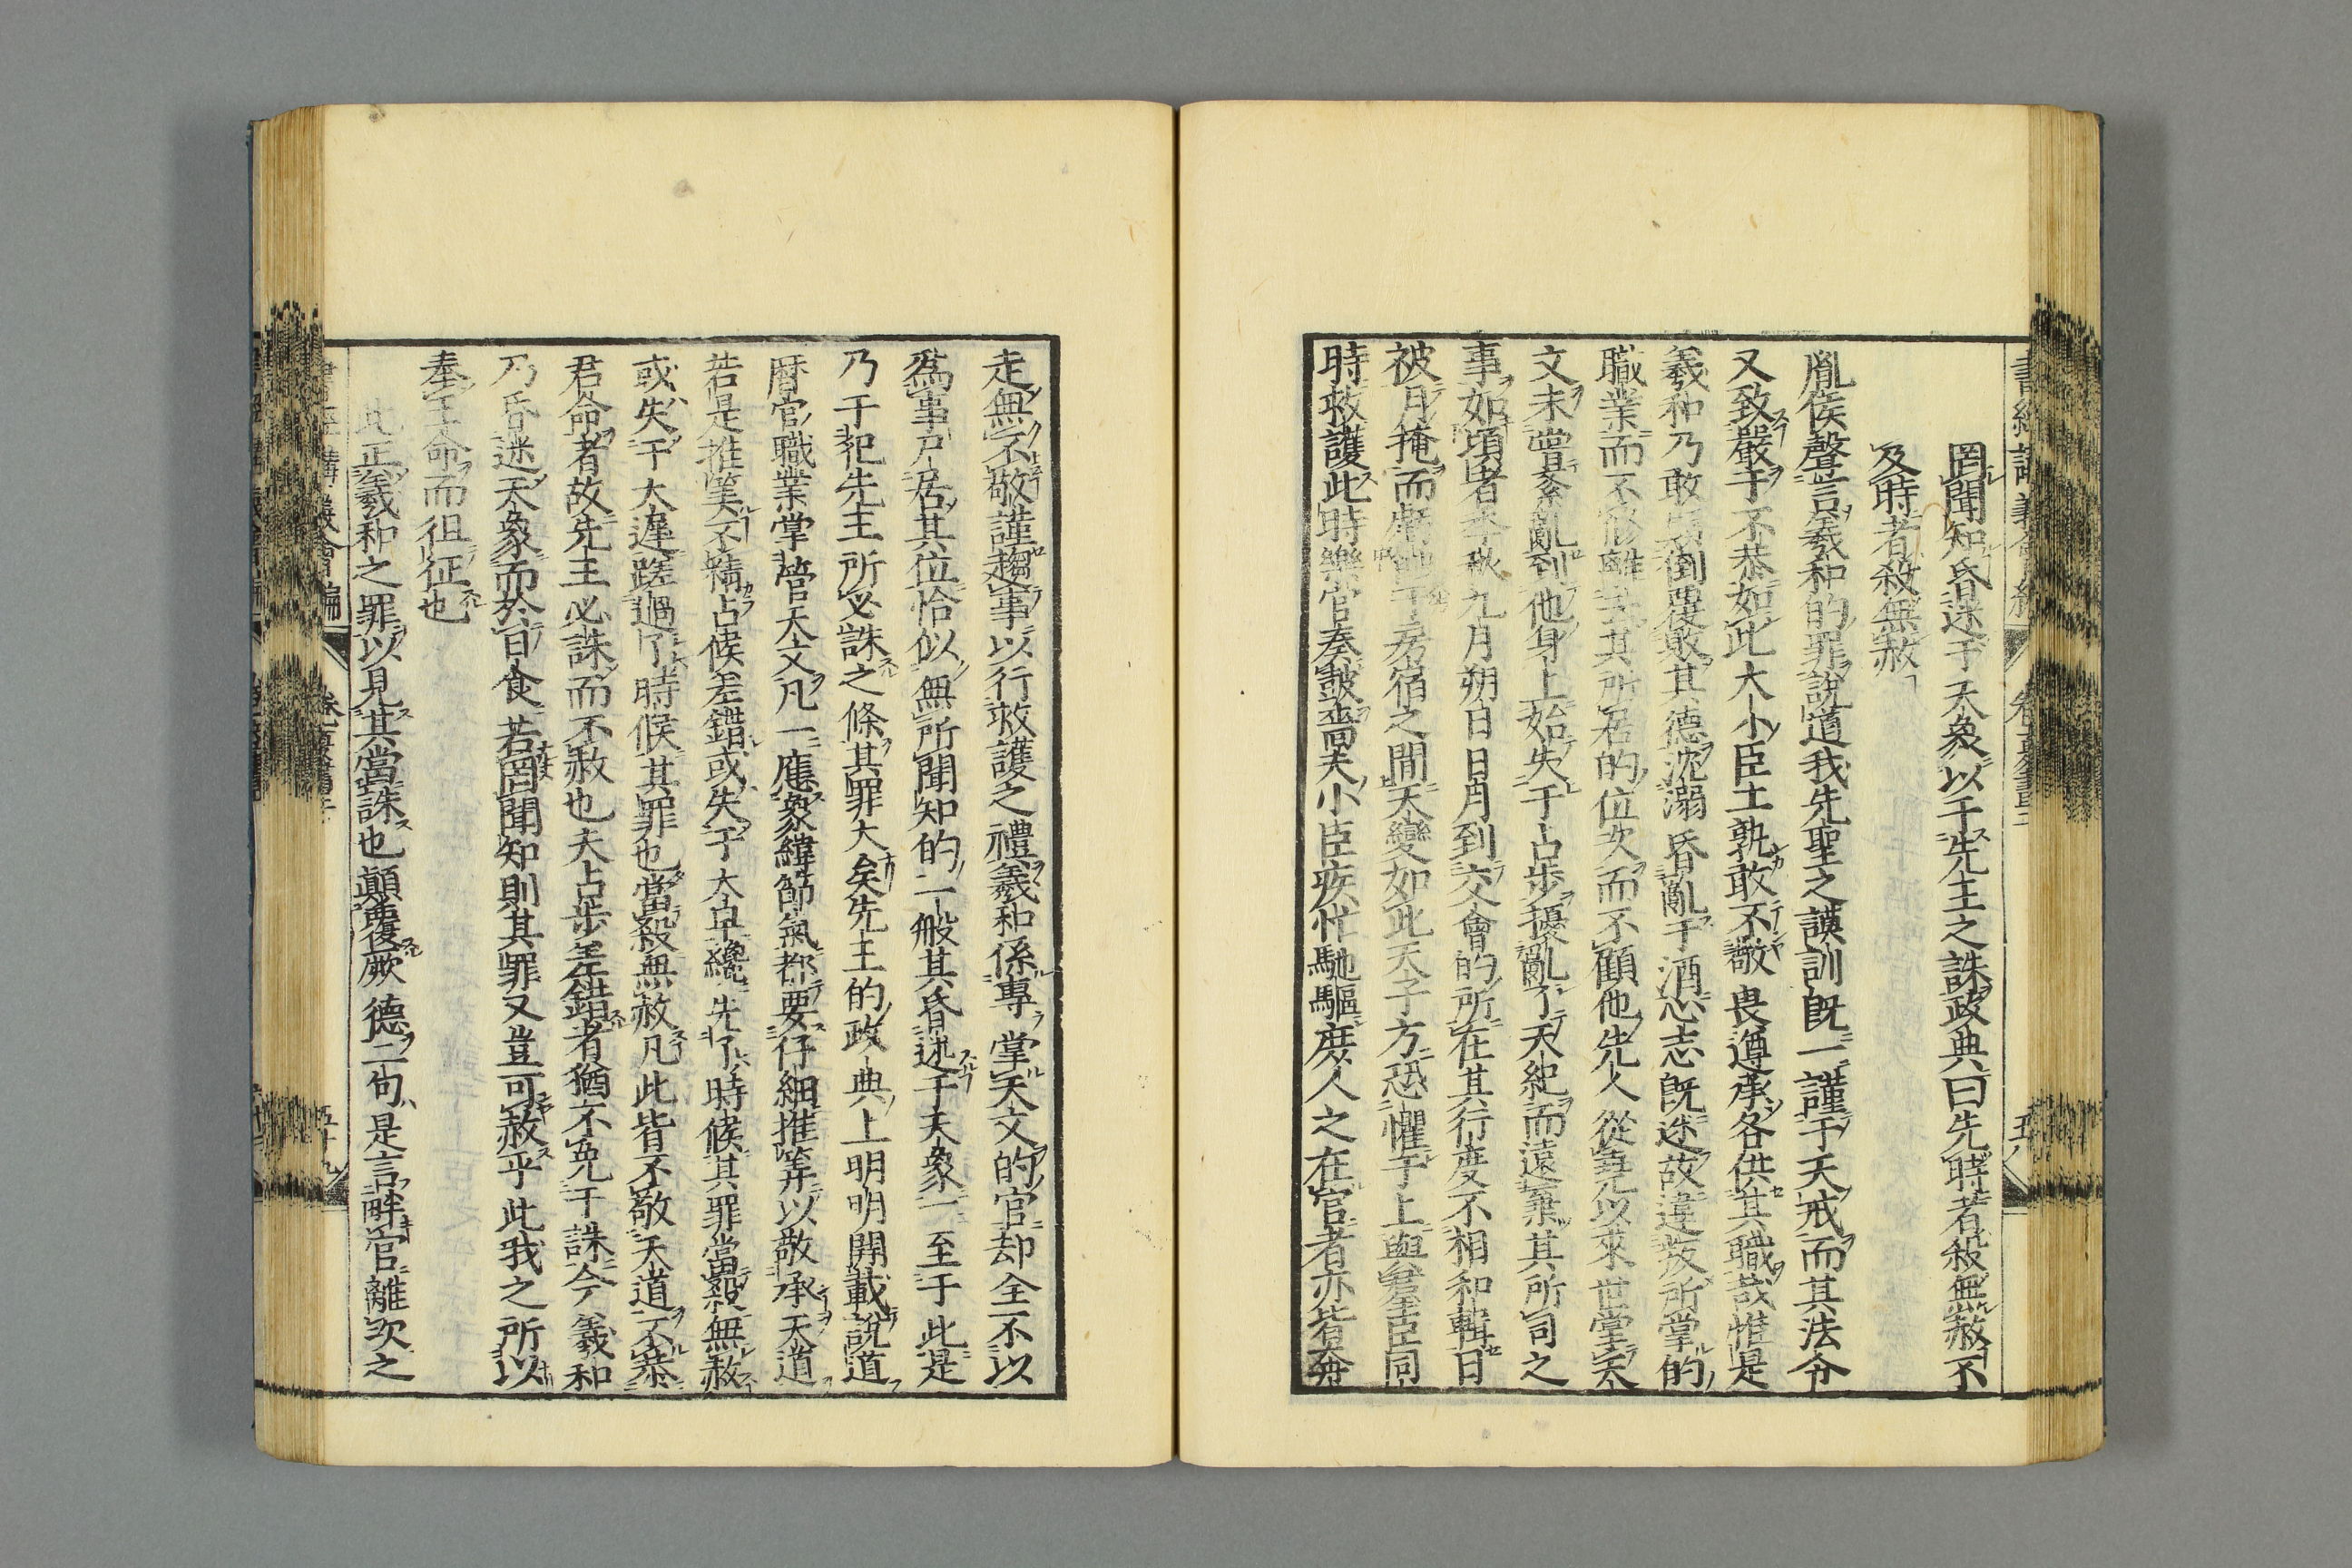 罔聞知昏迷于天象以干先王之誅政典曰先時者殺無赦不
及時者殺無赦
胤侯聲言羲和的罪說道我先聖之謨訓旣一謹于天戒而其法令
又致嚴于不恭如此大小臣工孰敢不敬畏遵承各供其職哉惟是
羲和乃敢顛倒覆敗其德沈溺昏亂于酒心志旣迷故違叛所掌的
職業而不修離去其所居的位次而不顧他先人從堯以來世掌天
文未曾紊亂到他身上始失于占步擾亂了天紀而遠棄其所司之
事如頃者季秋九月朔日日月到交會的所在其行度不相和輯日
被月掩而虧蝕于房宿之間天變如此天子方恐懼于上與羣臣同
時救護此時樂官奏鼓嗇夫小臣疾忙馳驅庶人之在官者亦皆奔
走無不敬謹趨事以行救護之禮羲和係專掌天文的官却全不以
爲事尸居其位恰似無所聞知的一般其昏迷于天象一至于此是
乃干犯先王所必誅之條其罪大矣先王的政典上明明開載說道
曆官職業掌管天文凡一應象緯節氣都要仔細推筭以敬承天道
若是推筭不精占候差錯或失于太早纔先了時候其罪當殺無赦
或失于太遲蹉過了時候其罪也當殺無赦凡此皆不敬天道不恭
君命者故先王必誅而不赦也夫占步差錯者猶不免于誅今羲和
乃昏迷天象而於日食若罔聞知則其罪又豈可赦乎此我之所以
奉王命而徂征也
此正羲和之罪以見其當誅也顚覆厥德二句是言畔官離次之